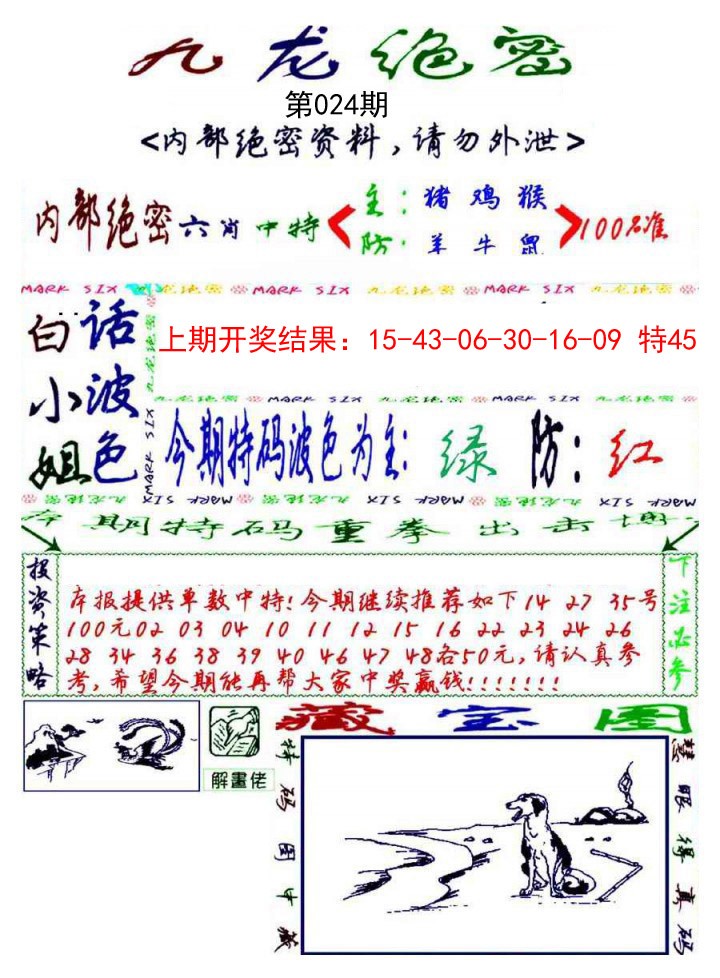 九龙绝密
第024期
<内部绝密资料,请勿外泄>
内部绝密六肖中特
主:猪鸡猴
防:羊牛鼠
100%准
MARK SIX 九龙绝密 MARK SIX 九龙绝密 MARK SIX 九龙绝密
白话小波姐色
九龙绝密 MARK SIX
上期开奖结果:15-43-06-30-16-09 特45
九龙绝密 MARK SIX 九龙绝密 MARK SIX 九龙绝密
今期特码波色为主:绿 防:红
九龙绝密 MARK SIX 九龙绝密 MARK SIX 九龙绝密 MARK SIX
本期特码重拳出击博
投资策略
本报提供单数中特!今期继续推荐如下14 27 35号
100元02 03 04 10 11 12 15 16 22 23 24 26
28 34 36 38 39 40 46 47 48各50元,请认真参
考,希望今期能再帮大家中奖赢钱!!!!!!!
下注必参
解畫佬
藏宝图
特码图中藏
慧眼得真码